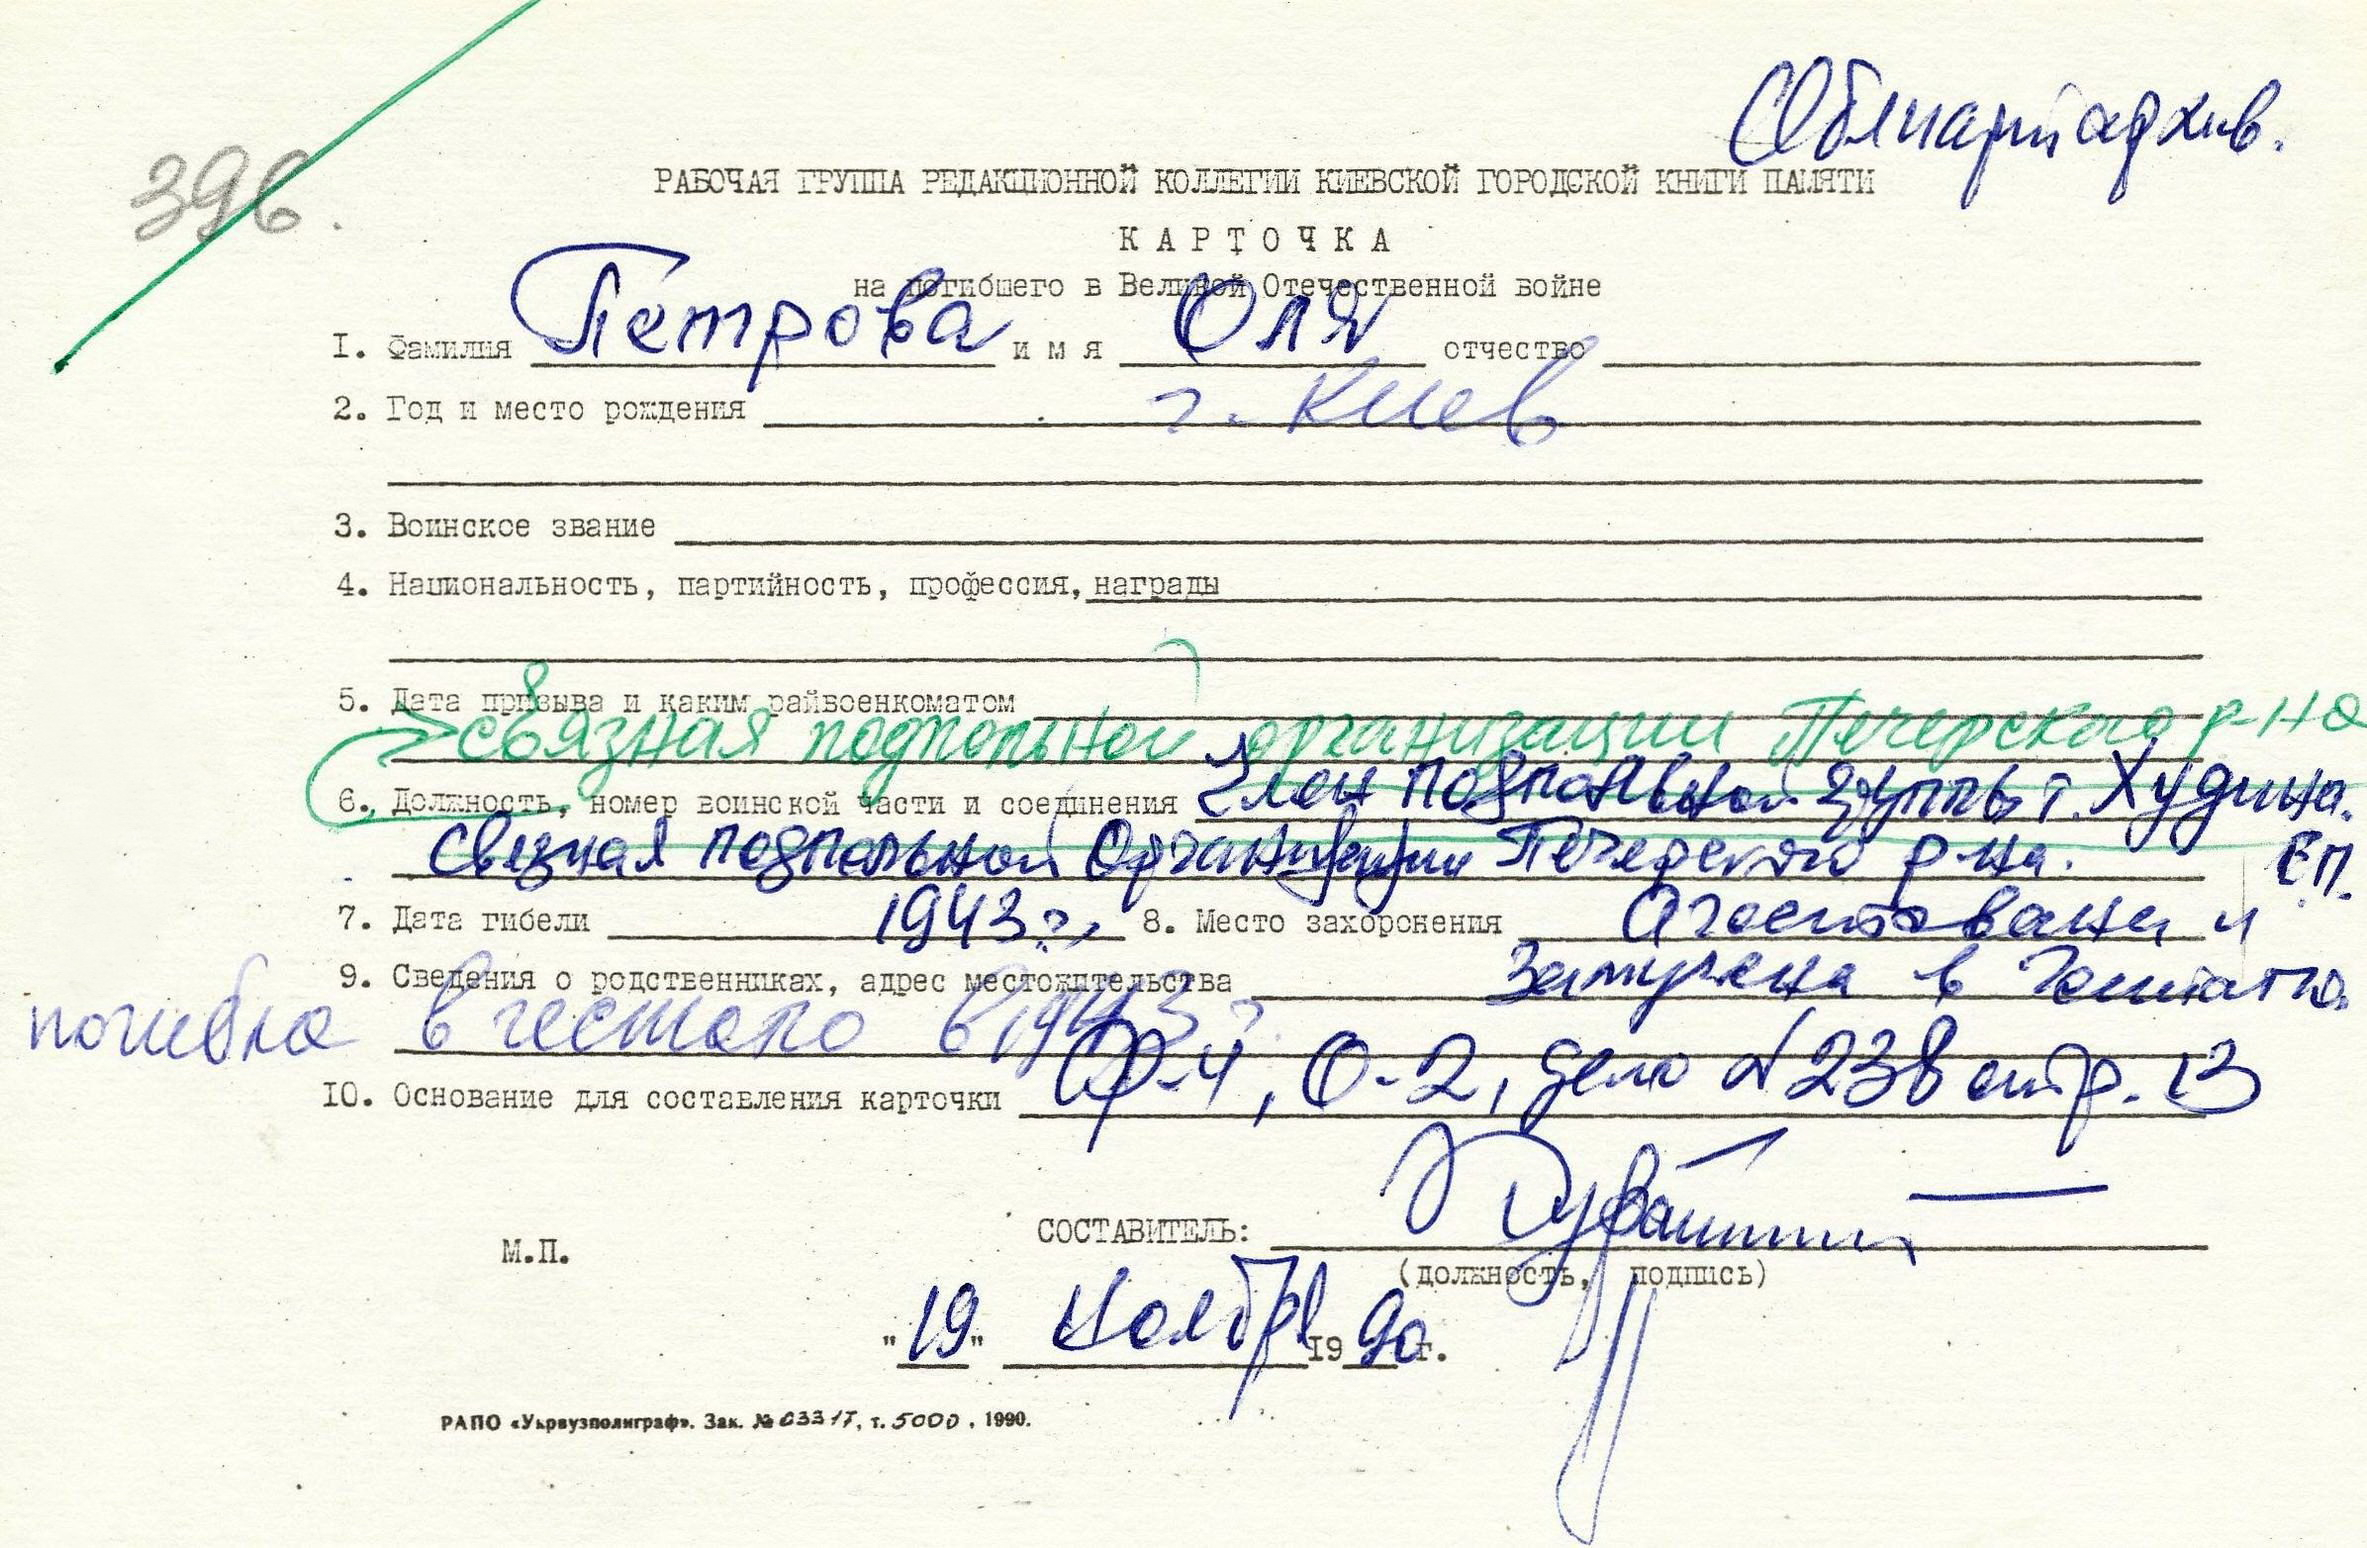 Облпартархив.
396.
РАБОЧАЯ ГРУППА РЕДАКЦИОННОЙ КОЛЛЕГИИ КИЕВСКОЙ ГОРОДСКОЙ КНИГИ ПАМЯТИ
КАРТОЧКА
на погибшего в Великой Отечественной войне
I. Фамилия Петрова имя Оля отчество
2. Год и место рождения г. Киев
3. Воинское звание
4. Национальность, партийность, профессия, награды
5. Дата призыва и каким райвоенкоматом
связная подпольной организации Печерского р-на
6. Должность, номер воинской части и соединения Член подпольной группы т. Худина.
Связная подпольной Организации Печерского р-на. ЕП.
7. Дата гибели 1943 г., 8. Место захоронения Арестована и
9. Сведения о родственниках, адрес местожительства замучена в Гестапо.
погибла в гестапо в 1943 г.
10. Основание для составления карточки Ф-4, О-2, дело № 238 стр. 13
СОСТАВИТЕЛЬ:
М.П.
(должность, подпись)
"19" Ноября 1990 г.
РАПО «Укрвузполиграф». Зак. № 0331Т, т. 5000, 1990.